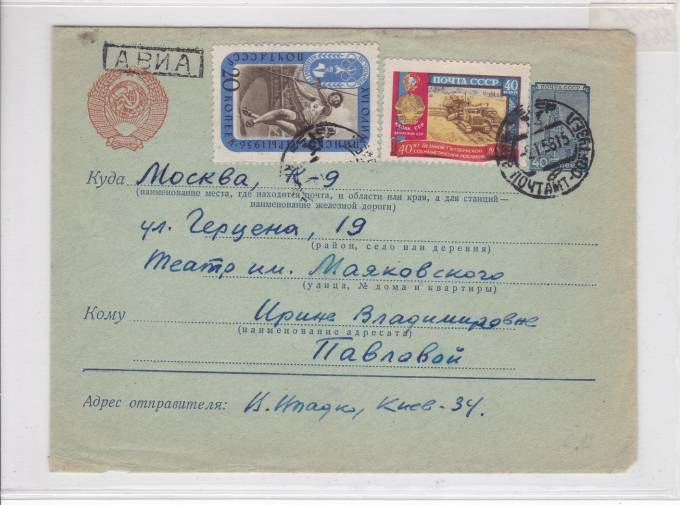 АВИА
ПОЧТА СССР
20 КОПЕЕК
ПОЧТА СССР 40 КОП
КАЗАК ССР
40 ЛЕТ ВЕЛИКОЙ ОКТЯБРЬСКОЙ
СОЦИАЛИСТИЧЕСКОЙ РЕВОЛЮЦИИ
ПОЧТА СССР
40
ПОЧТАМТ
Куда Москва, К-9
(наименование места, где находится почта, и области или края, а для станций —
наименование железной дороги)
ул. Герцена, 19
(район, село или деревня)
Театр им. Маяковского
(улица, № дома и квартиры)
Кому Ирине Владимировне
(наименование адресата)
Павловой
Адрес отправителя: Киев-34.